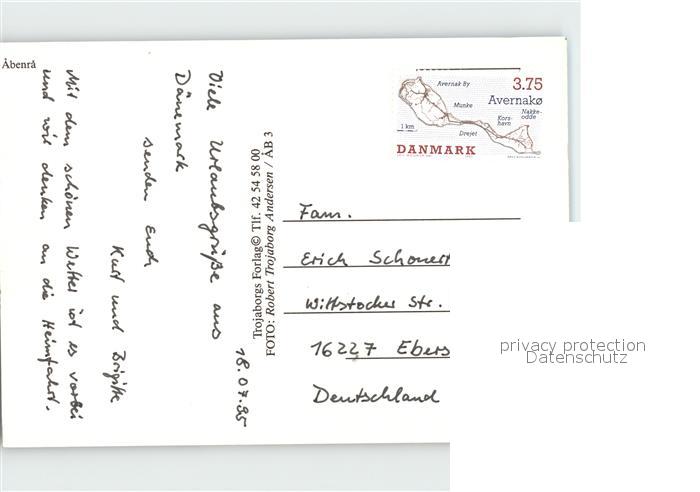 Åbenrå
18.07.95
Viele Urlaubsgrüße aus
Dänemark
senden Euch
Kurt und Brigitte
Mit dem schönen Wetter ist es vorbei
und wir denken an die Heimfahrt.
Trojaborgs Forlag© Tlf. 42 54 58 00
FOTO: Robert Trojaborg Andersen / ÅB 3
3.75
Avernakø
Avernak By
Munke
Nakke-
odde
Kors-
havn
Drejet
1 km
DANMARK
Fam.
Erich Schonert
Wittstocker Str.
16227 Ebers
Deutschland
privacy protection
Datenschutz